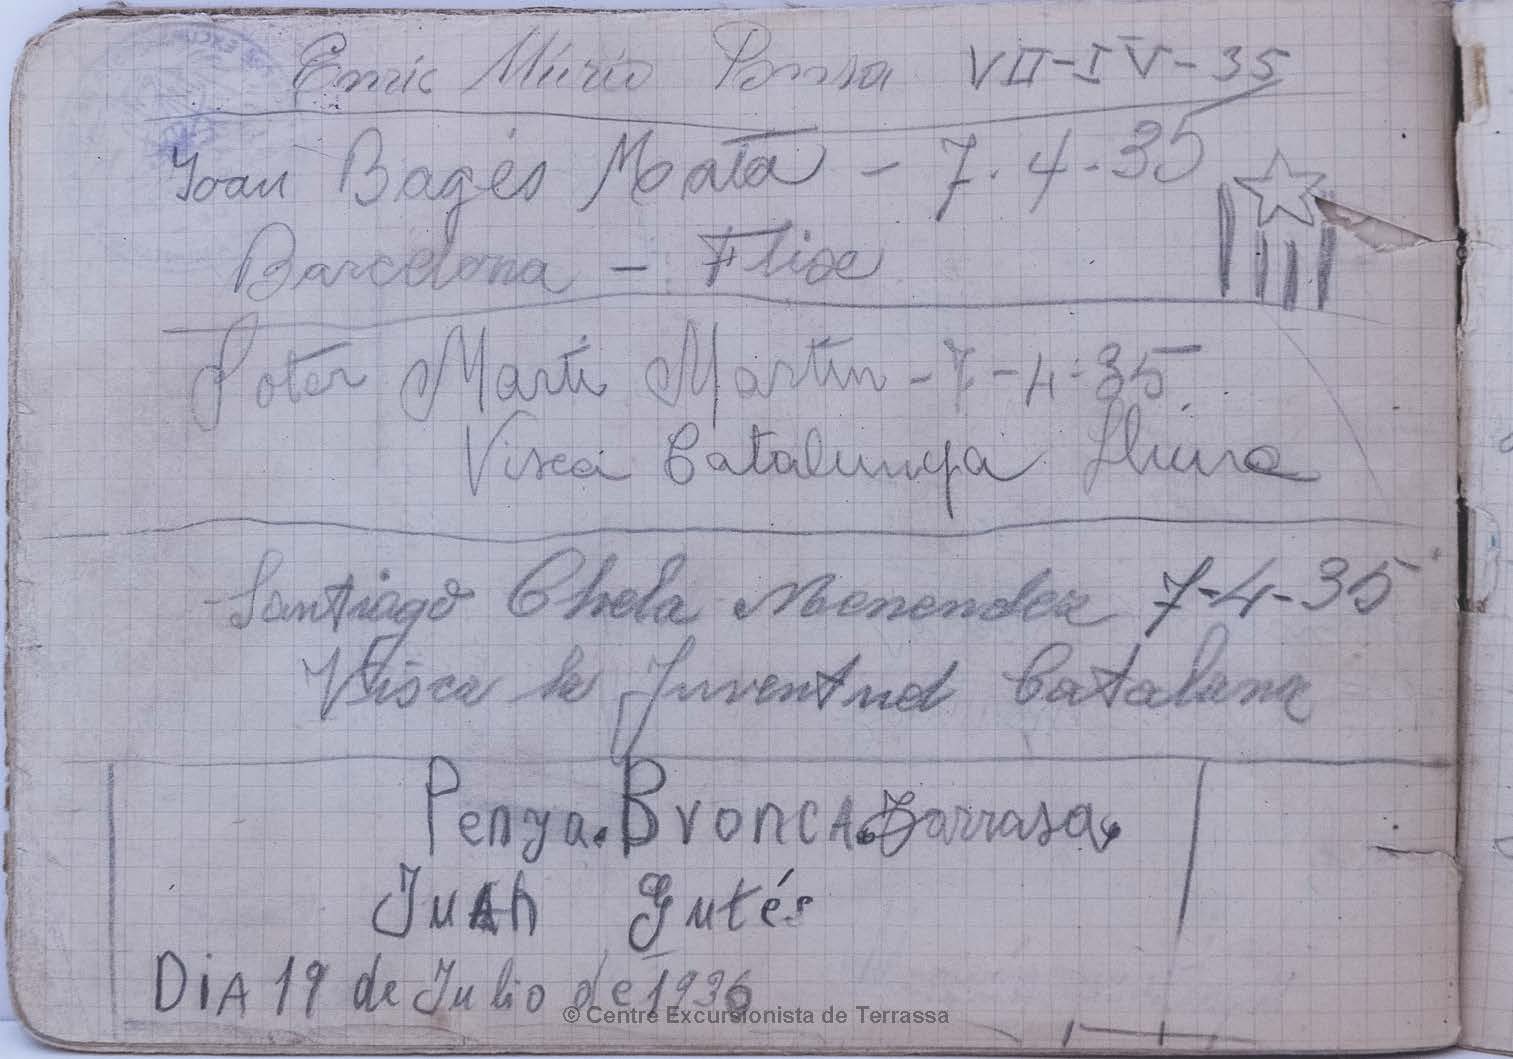 Enric Múrio Ponsa VII-IV-35
Joan Bagés Mata - 7.4-35
Barcelona - Flix
Soter Martí Martin - 7-4-35
Visca Catalunya lliure
Santiago Chela Menendez 7-4-35
Visca la Juventud Catalana
Penya.Bronca.Tarrasa.
Juan Gutés
Dia 19 de Julio de 1936
© Centre Excursionista de Terrassa